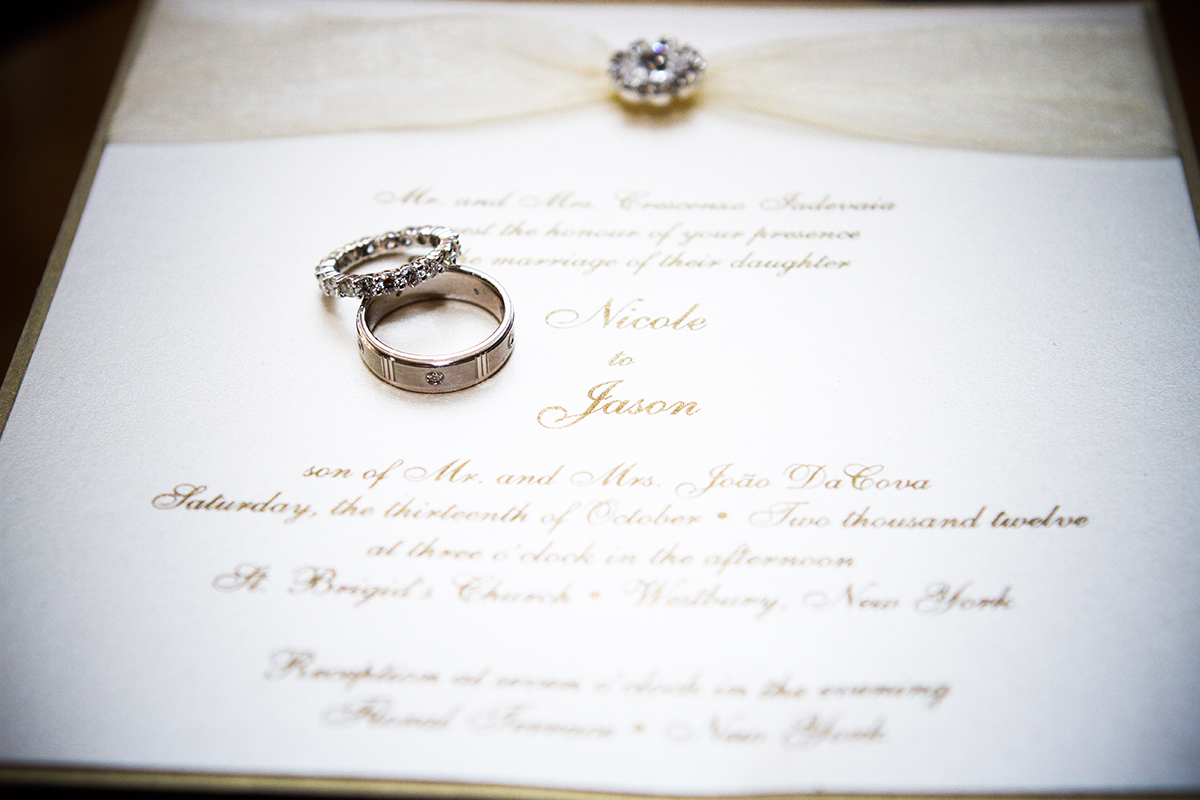 Mr. and Mrs. Crescenzo Iadevaia
the honour of your presence
marriage of their daughter
Nicole
to
Jason
son of Mr. and Mrs. João DaCova
Saturday, the thirteenth of October • Two thousand twelve
at three o'clock in the afternoon
St. Brigid's Church • Westbury, New York
Reception at seven o'clock in the evening
Terrace • New York